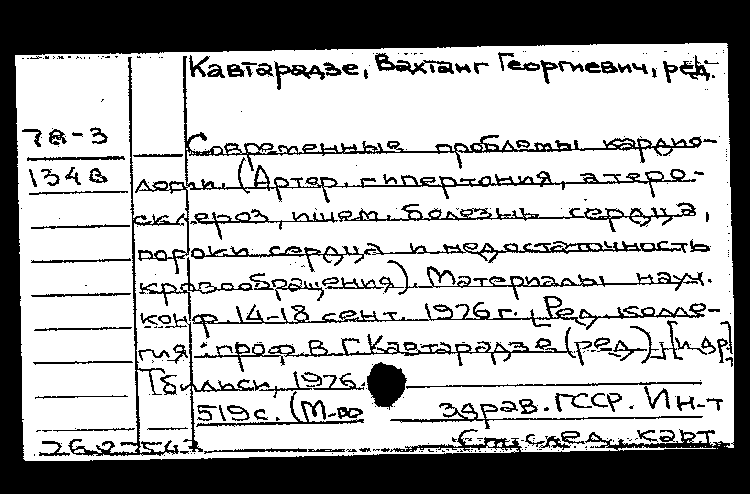 Кавтарадзе, Вахтанг Георгиевич, ред.
78-3
1348
Современные проблемы кардио-
логии. (Артер. гипертония, атеро-
склероз, ишем. болезнь сердца,
пороки сердца и недостаточность
кровообращения). Материалы науч.
конф. 14-18 сент. 1976 г. [Ред. колле-
гия: проф. В. Г. Кавтарадзе (ред.)], [и др]
Тбилиси, 1976.
519 с. (М-во здрав. ГССР. Ин-т
См. след. карт.